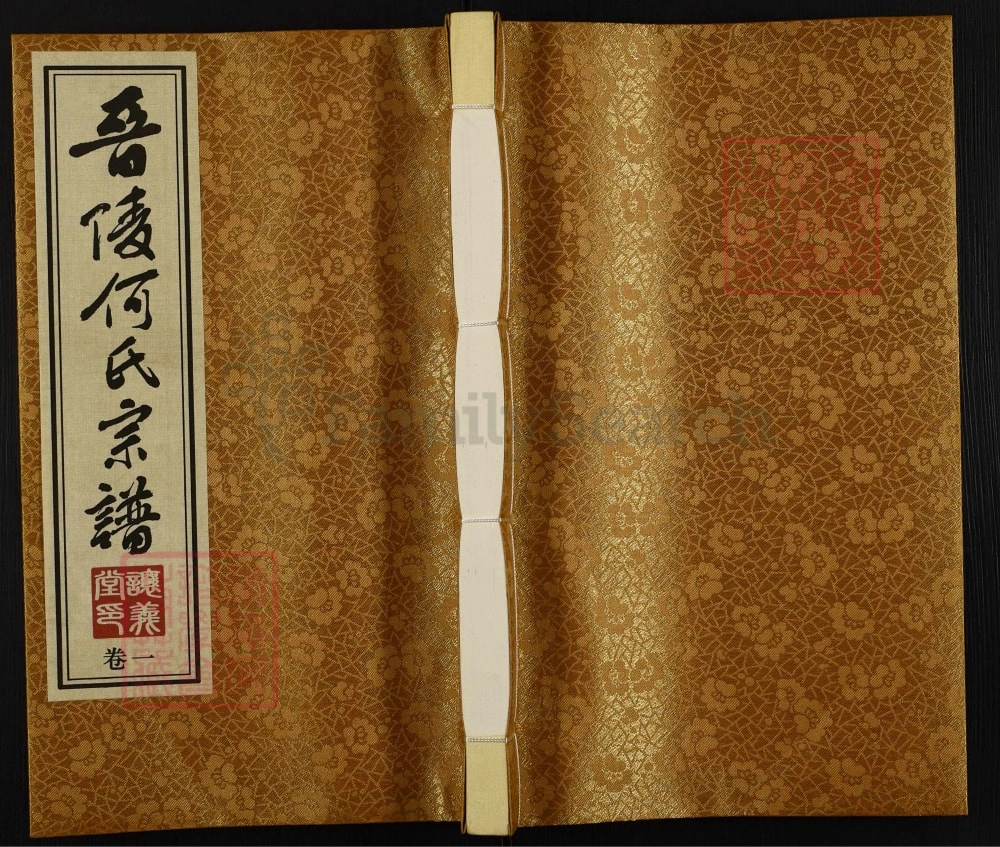 晉陵何氏宗譜
讓義堂印
卷一
FamilySearch